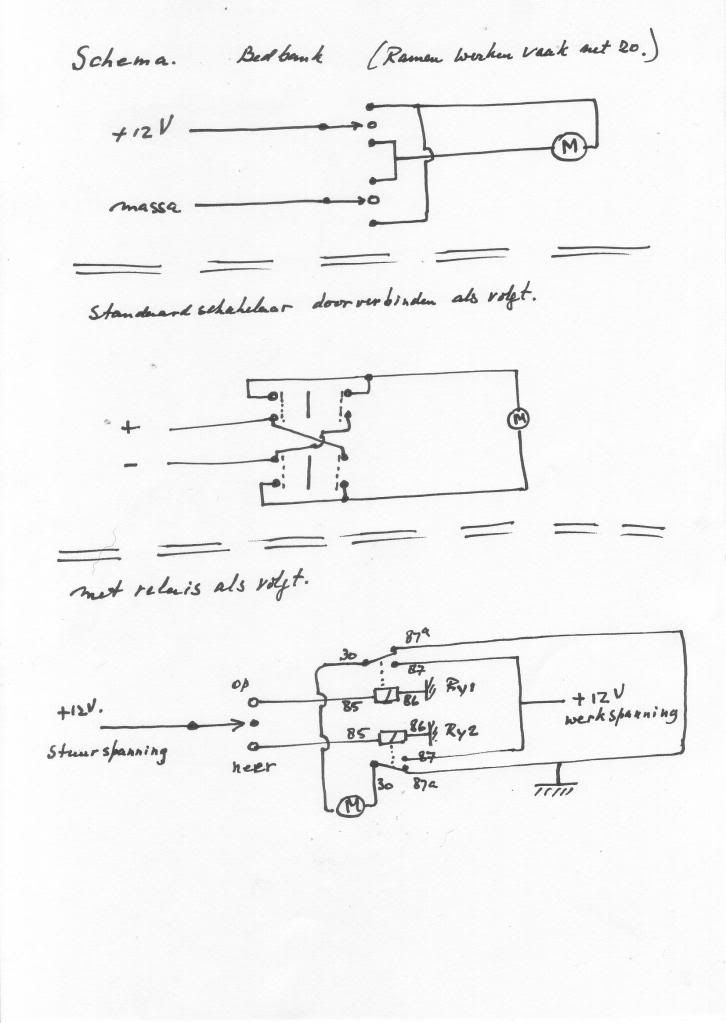 Schema. Bedbank (Ramen werken vaak net zo.)
+12V
M
massa
Standaard schakelaar doorverbinden als volgt.
+
M
-
met relais als volgt.
87a
30
87
op
Ry1
85
86
+12V
werkspanning
+12V.
stuurspanning
85
86
Ry2
neer
87
30
87a
M